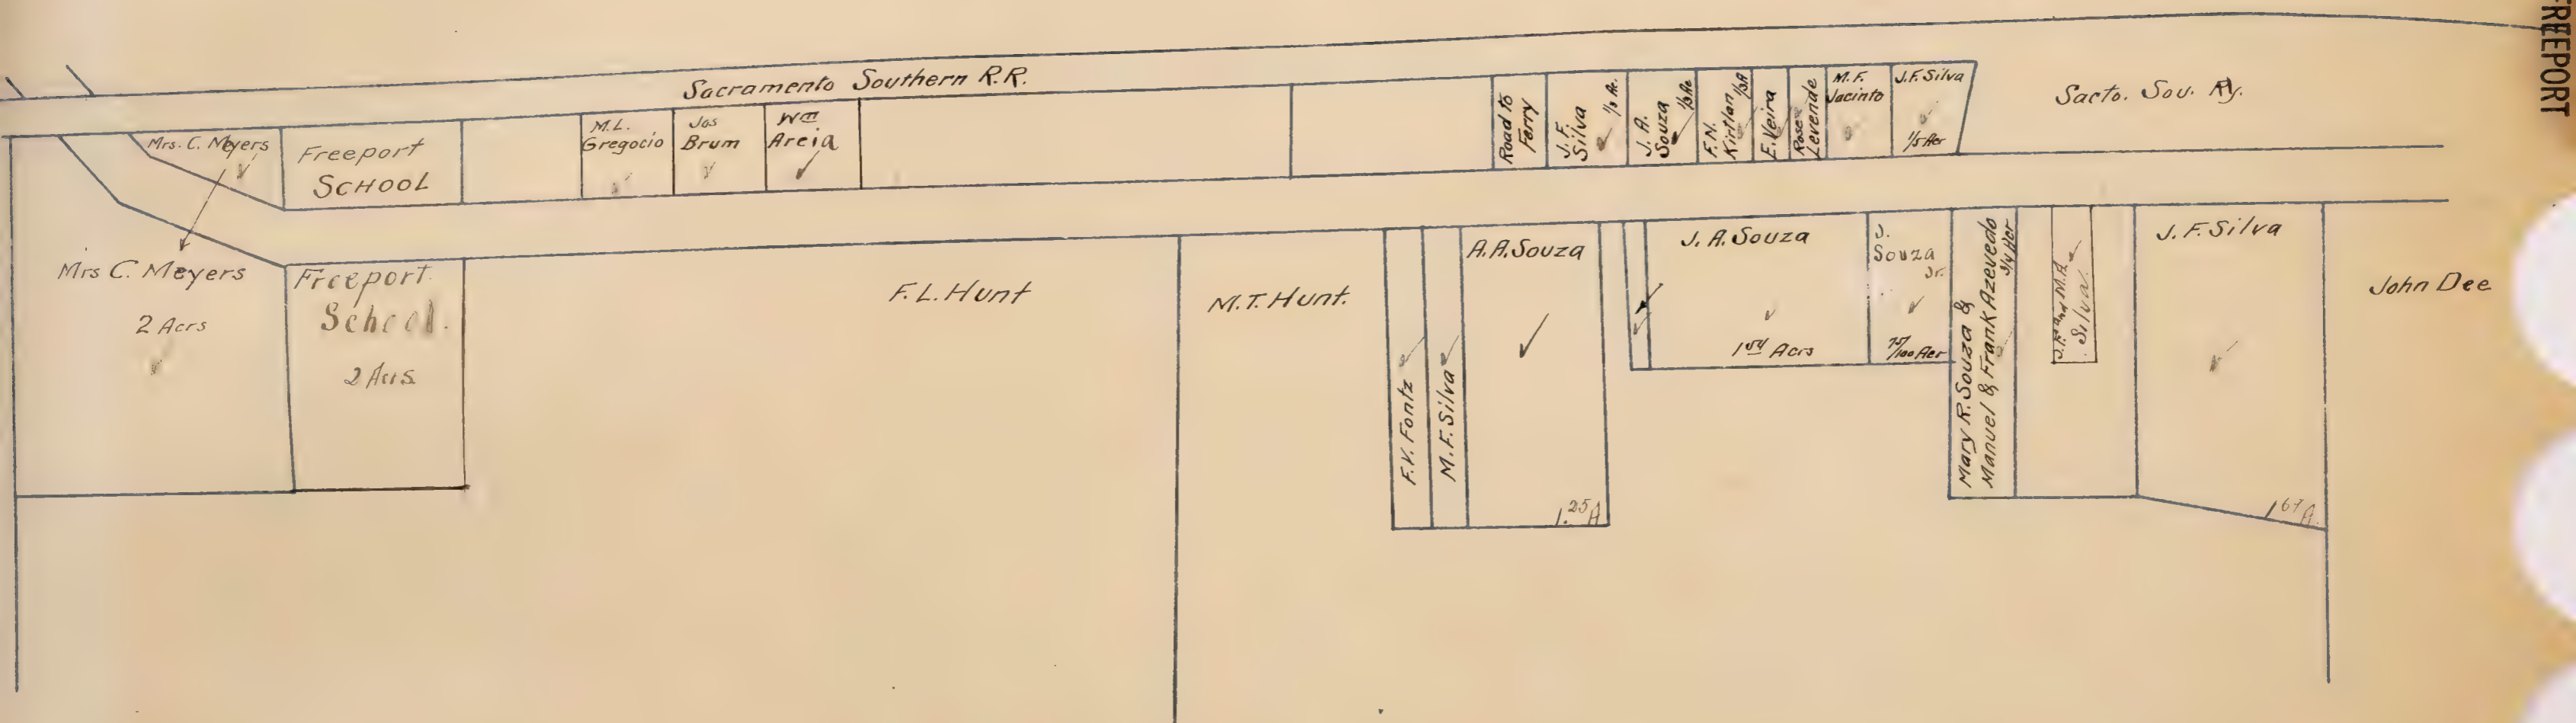 FREEPORT
Sacramento Southern R.R.
Sacto. Sou. Ry.
Mrs. C. Meyers
Freeport
SCHOOL
M.L.
Gregocio
Jos
Brum
Wm
Areia
Road to
Ferry
J.F.
Silva
1/3 Ac.
J. A.
Souza
1/3 Ac
F.N.
Kirtlan
1/3 A
E. Veira
Rose
Levende
M.F.
Jacinto
J.F. Silva
1/5 Acr
Mrs C. Meyers
2 Acrs
Freeport
School.
2 Acrs.
F.L. Hunt
M.T. Hunt.
F.V. Fontz
M.F. Silva
A.A. Souza
1.25 A
J. A. Souza
1 54 Acrs
J.
Souza
Jr.
75/100 Acr
Mary R. Souza &
Manuel & Frank Azevedo
3/4 Acr
J.F. and M.A.
Silva.
J. F. Silva
1 67 A.
John Dee